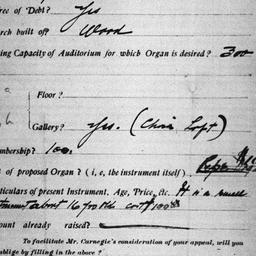 ree of Debt? Yes
rch built of? Wood
ing Capacity of Auditorium for which Organ is desired? 300
Floor?
Gallery? Yes. (Choir Loft)
mbership? 100.
t of proposed Organ? (i, e, the instrument itself)
ticulars of present instrument. Age, Price, etc. It is a small
about 16 years old cost
ount already raised?
To facilitate Mr. Carnegie's consideration of your appeal, will you
oblige by filling in the above?